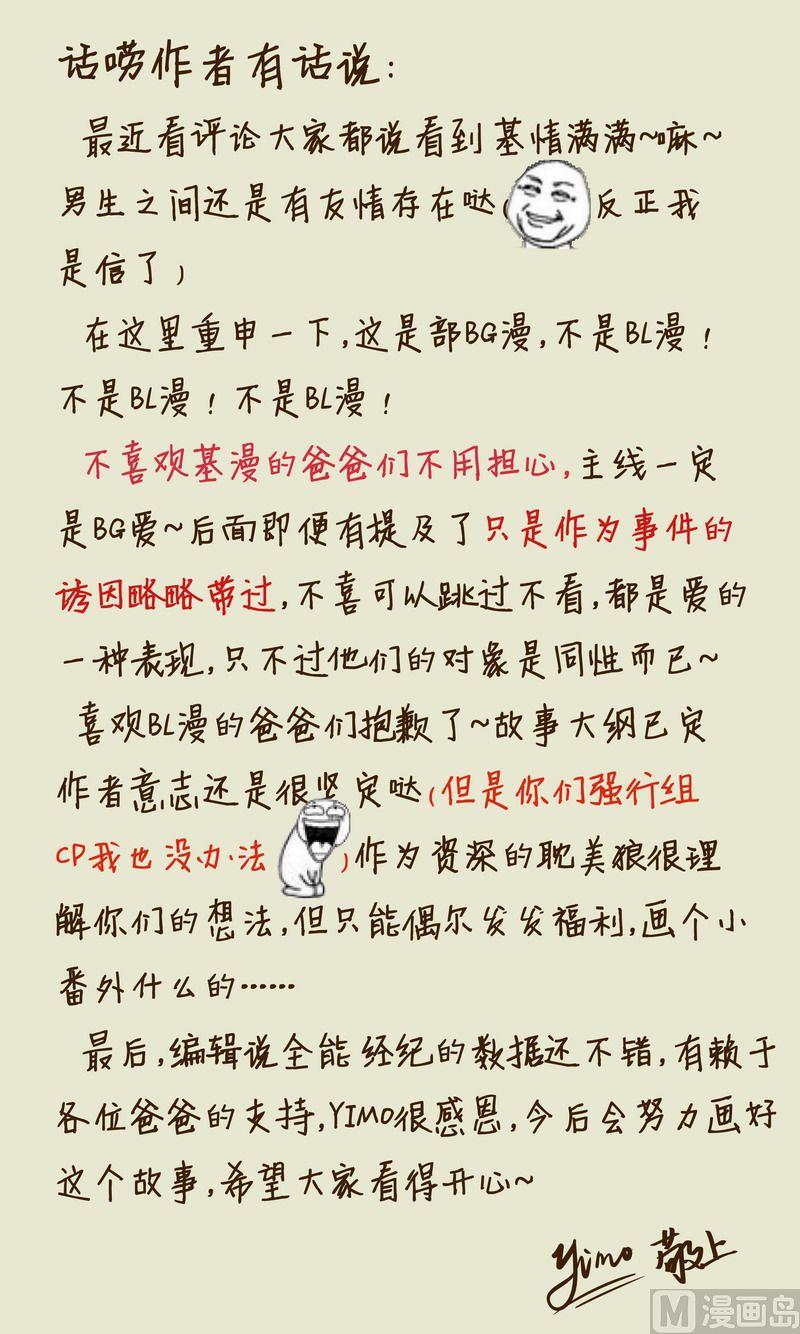 话唠作者有话说:
最近看评论大家都说看到基情满满~嘛~
男生之间还是有友情存在哒(反正我
是信了)
在这里重申一下,这是部BG漫,不是BL漫!
不是BL漫!不是BL漫!
不喜欢基漫的爸爸们不用担心,主线一定
是BG爱~后面即便有提及了只是作为事件的
诱因略略带过,不喜可以跳过不看,都是爱的
一种表现,只不过他们的对象是同性而已~
喜欢BL漫的爸爸们抱歉了~故事大纲已定
作者意志还是很坚定哒(但是你们强行组
CP我也没办法)作为资深的耽美狼很理
解你们的想法,但只能偶尔发发福利,画个小
番外什么的……
最后,编辑说全能经纪的数据还不错,有赖于
各位爸爸的支持,YIMO很感恩,今后会努力画好
这个故事,希望大家看得开心~
yimo 敬上
M漫画岛